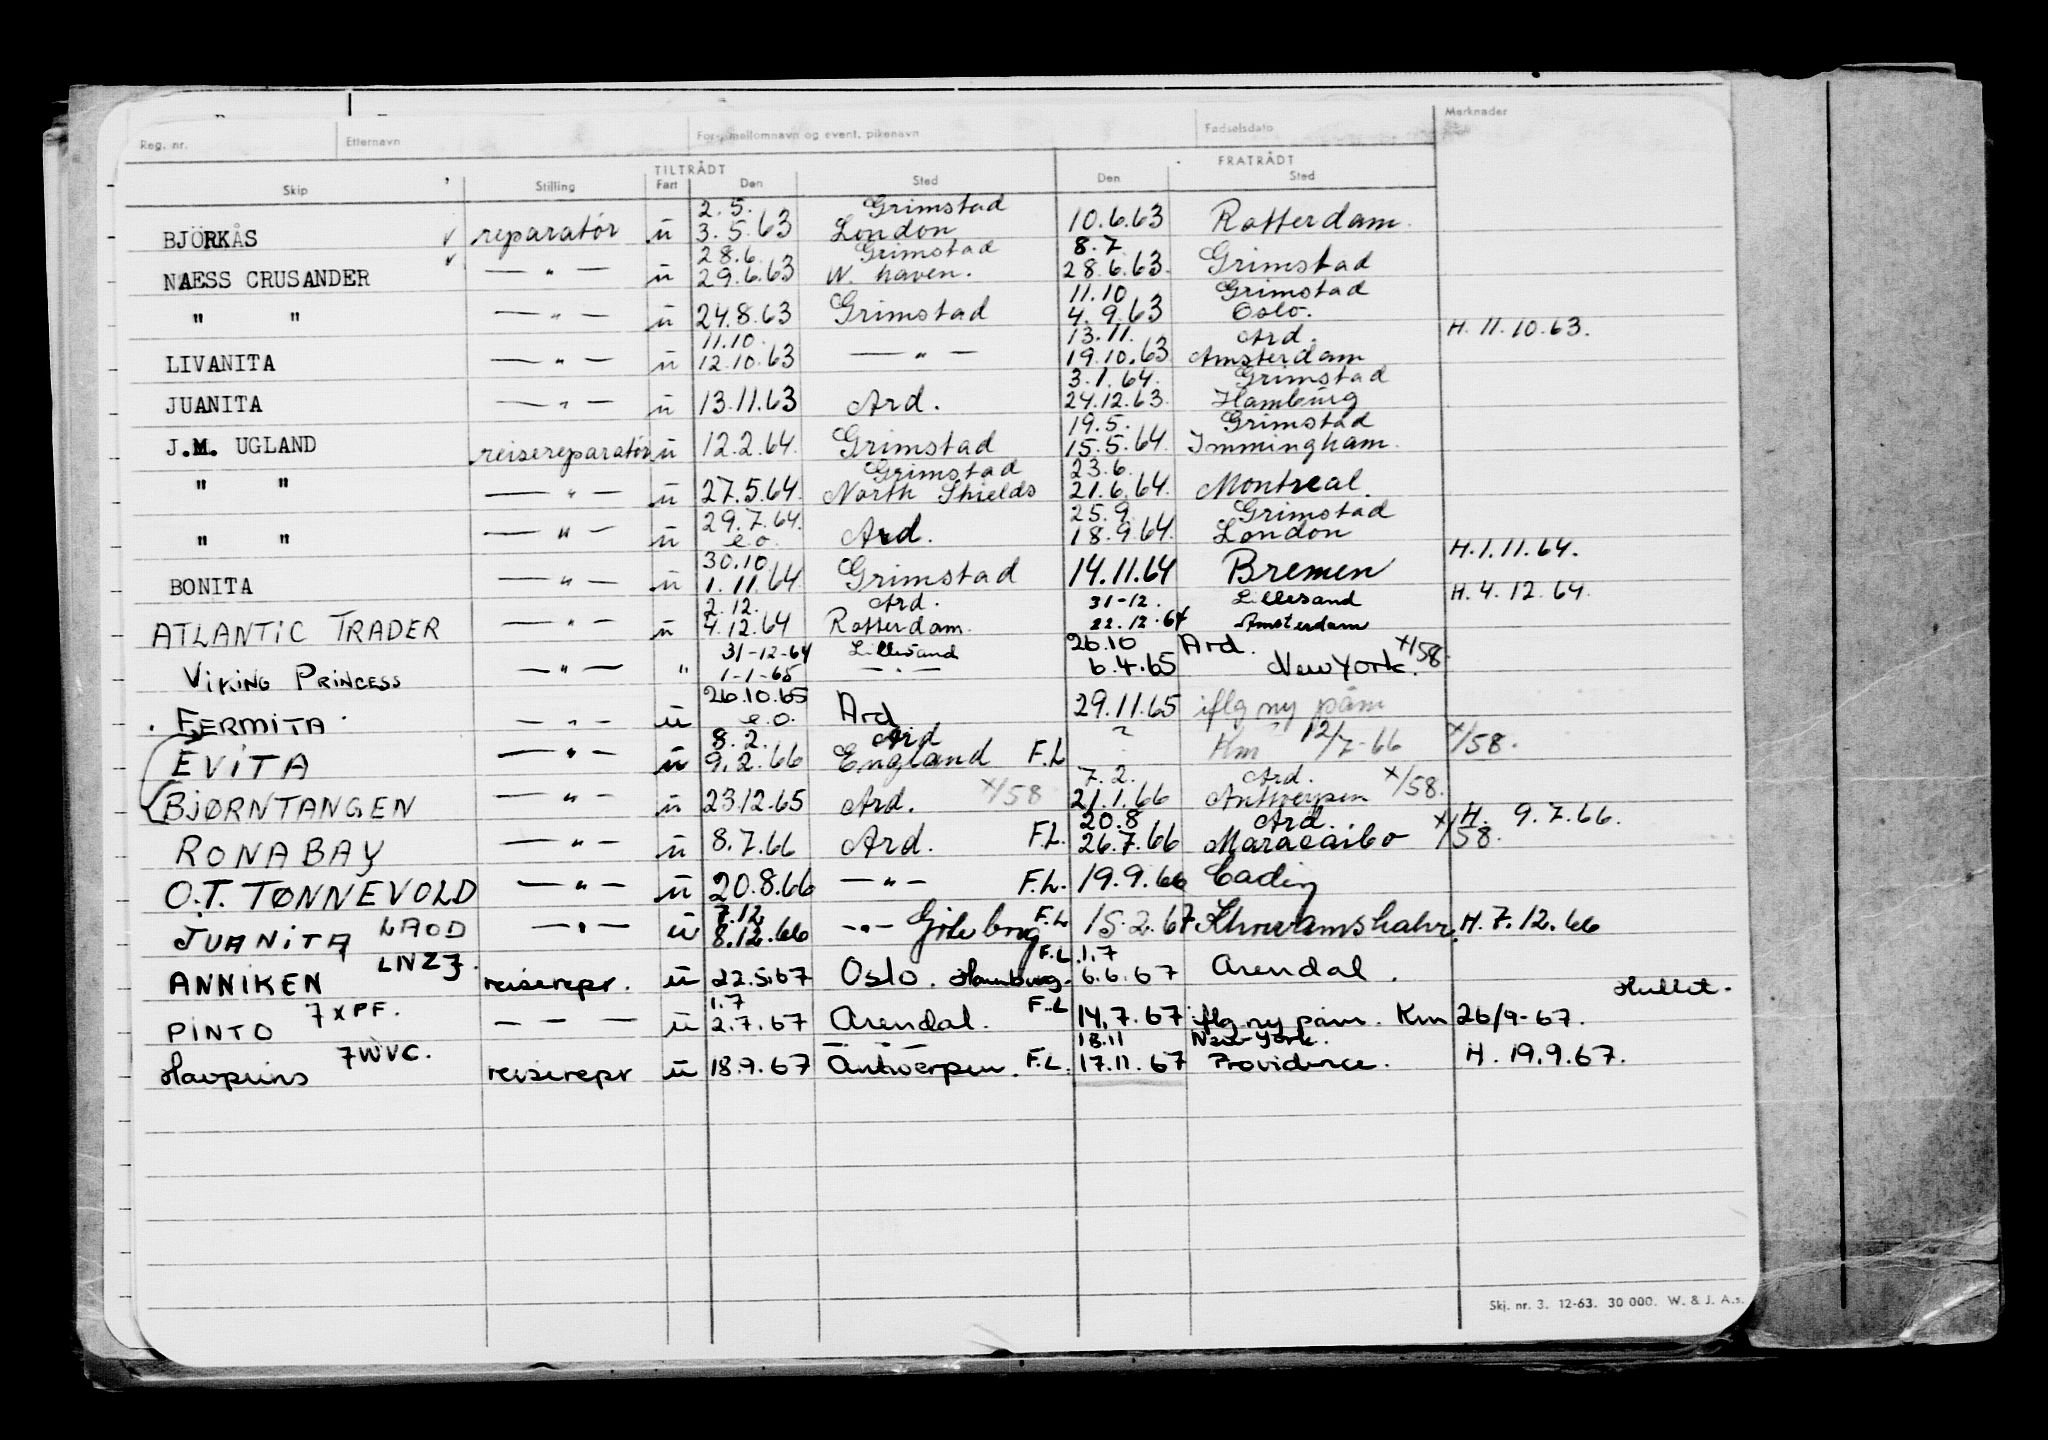 Reg. nr. Etternavn For-, mellomnavn og event. pikenavn Fødselsdato Merknader
TILTRÅDT FRATRÅDT
Skip Stilling Fart Den Sted Den Sted
2.5. Grimstad
BJÖRKÅS reparatør u 3.5.63 London 10.6.63 Rotterdam.
28.6. Grimstad 8.7
NAESS CRUSANDER — " — u 29.6.63 W. haven. 28.6.63. Grimstad
11.10 Grimstad
" " — " — u 24.8.63 Grimstad 4.9.63 Oslo.
11.10. 13.11. Ard. H. 11.10.63.
LIVANITA — " — u 12.10.63 — " — 19.10.63 Amsterdam
3.1.64. Grimstad
JUANITA — " — u 13.11.63 Ard. 24.12.63. Hamburg
19.5. Grimstad
J.M. UGLAND reisereparatør u 12.2.64. Grimstad 15.5.64. Immingham.
Grimstad 23.6.
" " — " — u 27.5.64. North Shields 21.6.64. Montreal.
29.7.64. 25.9. Grimstad
" " — " — u e.o. Ard. 18.9.64. London
30.10 H.1.11.64.
BONITA — " — u 1.11.64. Grimstad 14.11.64 Bremen
2.12. Ard. 31-12. Lillesand H.4.12.64.
ATLANTIC TRADER — " — u 4.12.64 Rotterdam. 22.12.64 Amsterdam
31-12-64 Lillesand 26.10 Ard. x/58.
VIKING PRINCESS — " — " 1-1-65 — " — 6.4.65 New York.
26.10.65
. FERMITA . — " — u e.o. Ard 29.11.65 iflg ny påm
8.2. Ard ? Km 12/7-66 x/58.
EVITA — " — u 9.2.66 England F.L
7.2. Ard. x/58.
BJØRNTANGEN — " — u 23.12.65 Ard. x/58 21.1.66 Antwerpen
20.8 Ard. H. 9.7.66.
RONABAY — " — u 8.7.66 Ard. F.L. 26.7.66 Maracaibo x/58.
O.T. TØNNEVOLD — " — u 20.8.66 — " — F.L. 19.9.66
7.12
JUANITA LAOD — " — u 8.12.66 — " — Göteborg F.L 15.2.67 H.7.12.66
LNZJ. F.L. 1.7
ANNIKEN reiserepr. u 22.5.67 Oslo. Hamburg. 6.6.67 Arendal.
7XPF. 1.7 F.L
PINTO — — — u 2.7.67 Arendal. 14.7.67 iflg ny påm. Km 26/9-67.
7WVC. — " — 18.11 New York.
Havprins reiserepr u 18.9.67 Antwerpen. F.L. 17.11.67 Providence. H. 19.9.67.
Skj. nr. 3. 12-63. 30 000. W. & J. A.s.